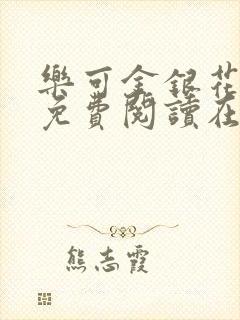 樂可金銀花
免費閱讀在
熊志霞